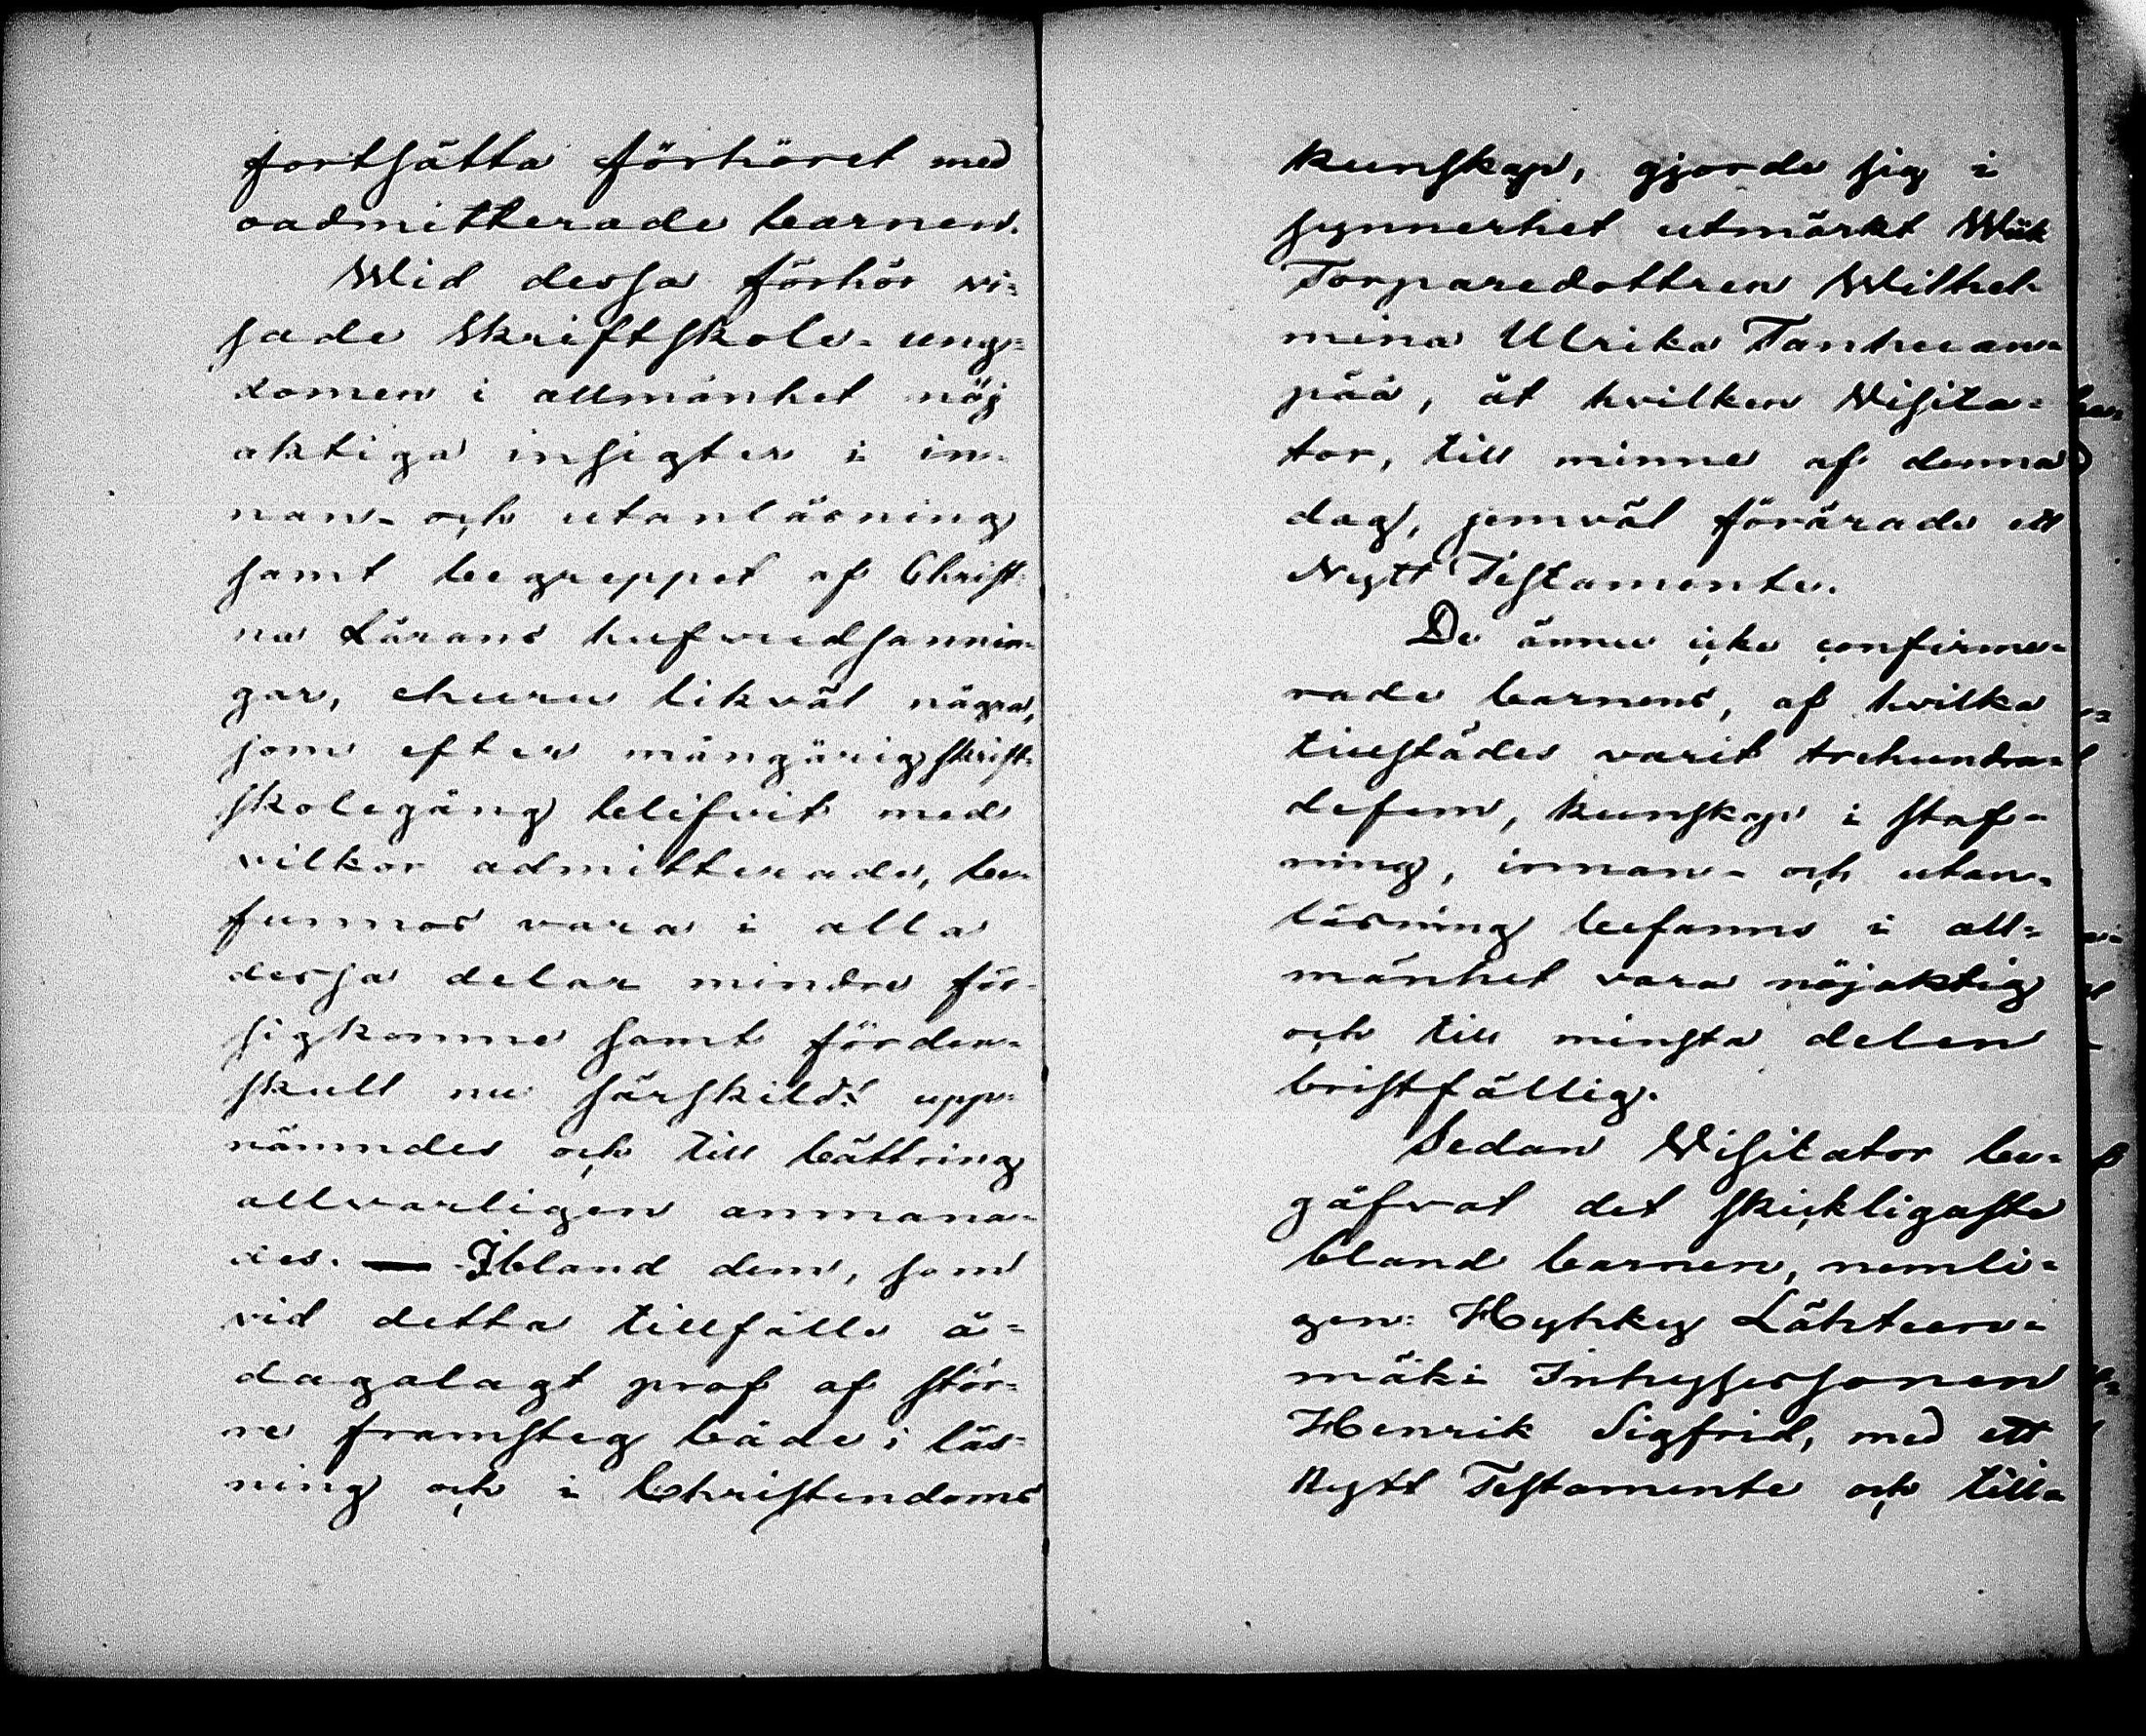 fortsätta förhöret med
oadmitterade barnen.
Wid dessa förhör vi-
sade Skriftskole-ung-
domen i allmänhet nöj
aktiga insigter i in-
nan- och utanläsning
samt begreppet af Christ-
na Lärans hufvudsannin-
gar, ehuru likväl några,
som efter mångårig skrift-
skolegång blifvit med
vilkor admitterade, be-
funnos vara i alla
dessa delar mindre för-
sigkomne samtförden-
skull nu särskildt upp-
nämndes och till bättring
allvarligen anmana-
des. — Ibland dem, som
vid detta tillfälle å-
dagalagt prof af stör-
re framsteg både i läs-
ning och i Christendoms
kunskap, gjorde sig i
synnerhet utmärkt
Torparedottren Wilhel-
mina Ulrika Tanhuan-
pää, åt hvilken Visita-
tor, till minne af denna
dag, jemväl förärade ett
Nytt Testamente.
De ännu icke confirme-
rade barnens, af hvilka
tillstädes varit trehundra-
defem, kunskap i staf-
ning, innan- och utan-
läsning befanns i all-
mänhet vara nöjaktig
och till minsta delen
bristfällig.
Sedan Visitator be-
gåfvat det skickligaste
bland barnen, nemli-
gen: Hyhky Lähteen-
mäki Inhysessonen
Henrik Sigfrid, med ett
Nytt Testamente och till-